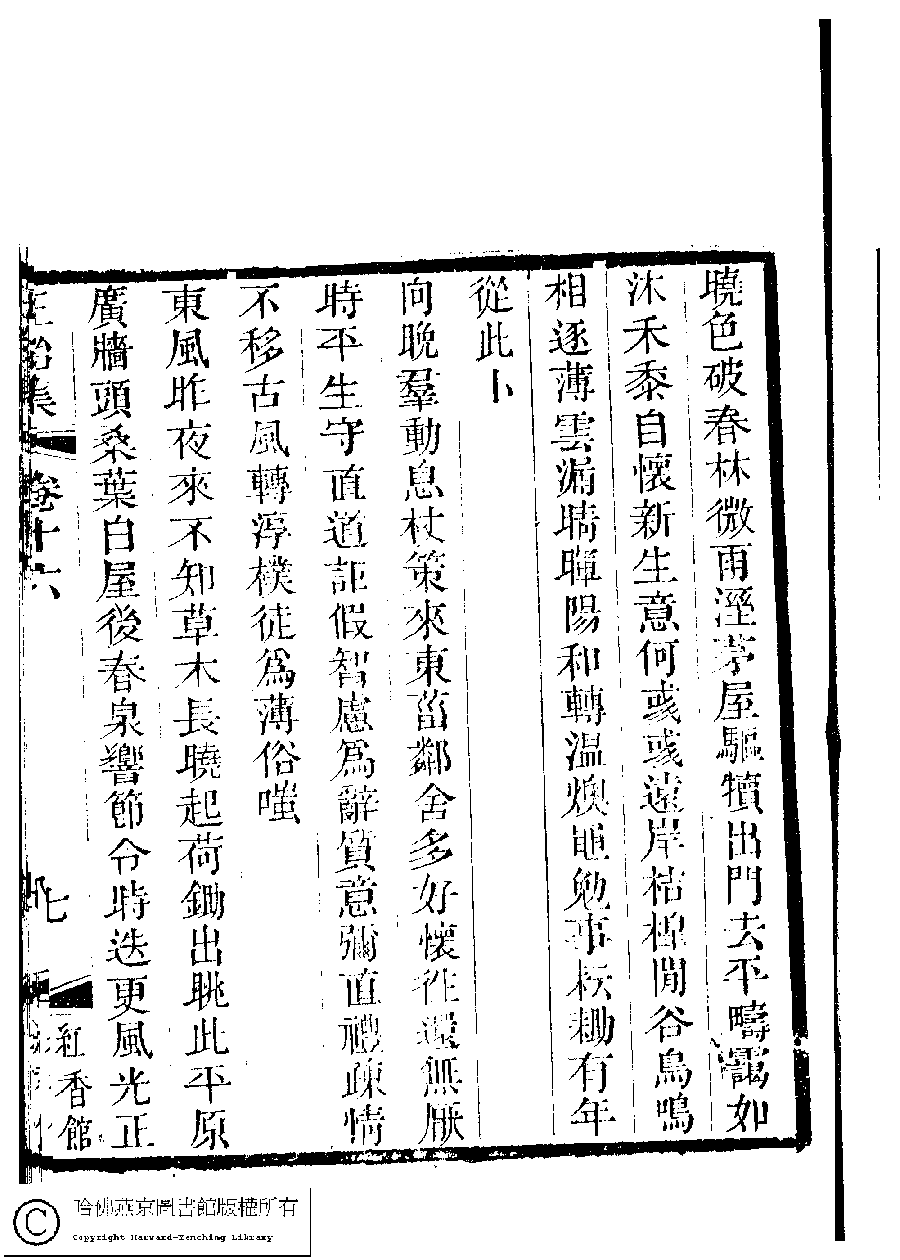 曉色破春林微雨溼茅屋驅犢出門去平疇靄如
沐禾黍自懷新生意何彧彧遠岸枯槔閒谷鳥鳴
相逐薄雲漏晴暉陽和轉温燠黽勉事耘耡有年
從此卜
向晚羣動息杖策來東菑鄰舍多好懷往還無厭
時平生守直道詎假智慮爲辭質意彌直禮疎情
不移古風轉淳樸徒爲薄俗嗤
東風昨夜來不知草木長曉起荷鋤出眺此平原
廣牆頭桑葉白屋後春泉響節令時迭更風光正
集 卷十六
七
紅香館
哈佛燕京圖書館版權所有
Copyright Harvard-Yenching Library